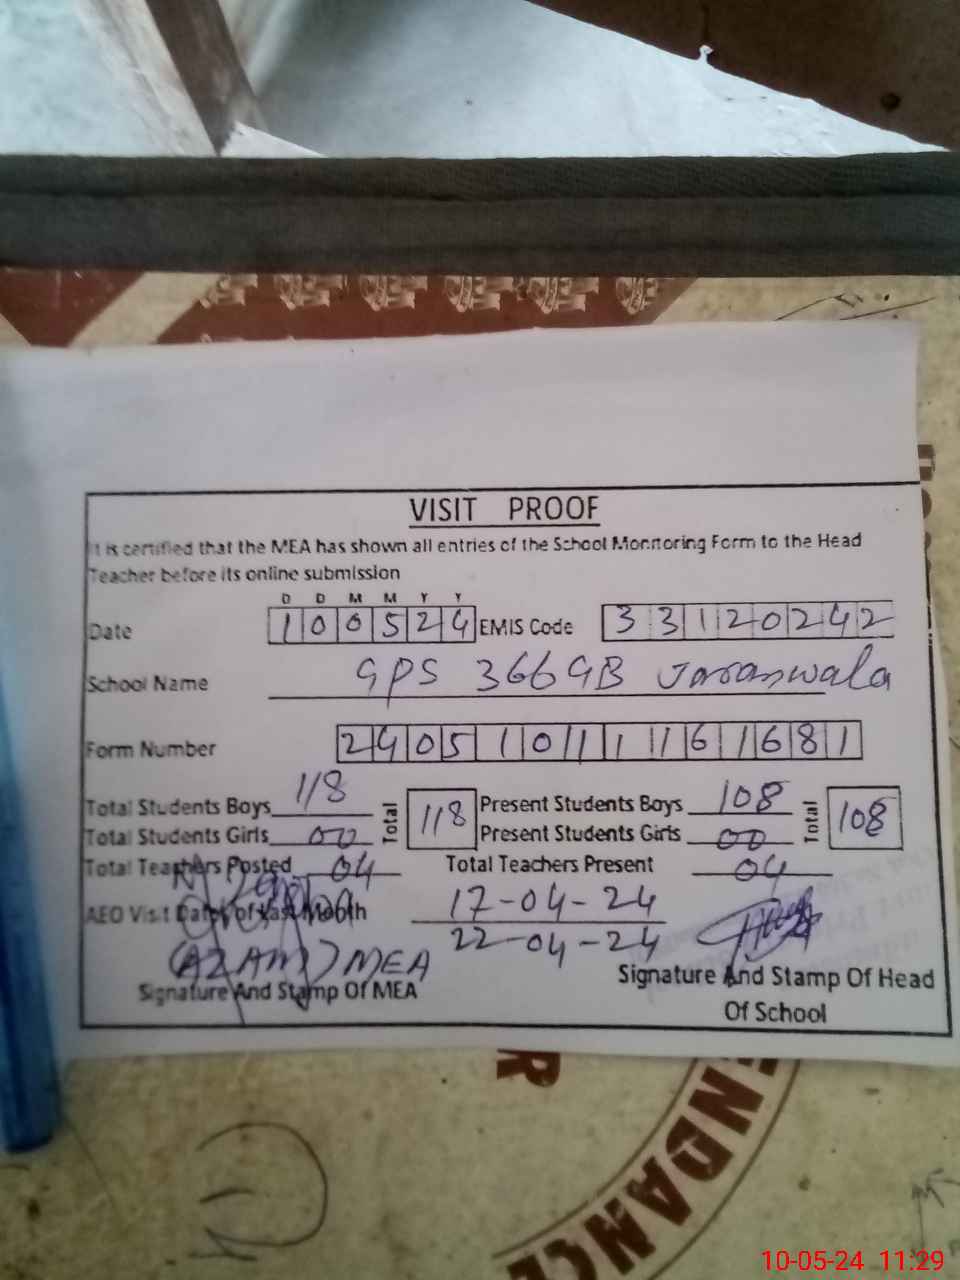 VISIT PROOF
It is certified that the MEA has shown all entries of the School Monitoring Form to the Head
Teacher before its online submission
D D M M Y Y
Date 100524 EMIS Code 33120242
School Name GPS 366 GB Jaranwala
Form Number 240510111161681
Total Students Boys 118 Total 118 Present Students Boys 108 Total 108
Total Students Girls 00 Present Students Girls 00
Total Teachers Posted 04 Total Teachers Present 04
AEO Visit Dates of Last Month 17-04-24
22-04-24
(AZAM) MEA
Signature And Stamp Of MEA
Signature And Stamp Of Head
Of School
ENDANCE
R
10-05-24 11:29